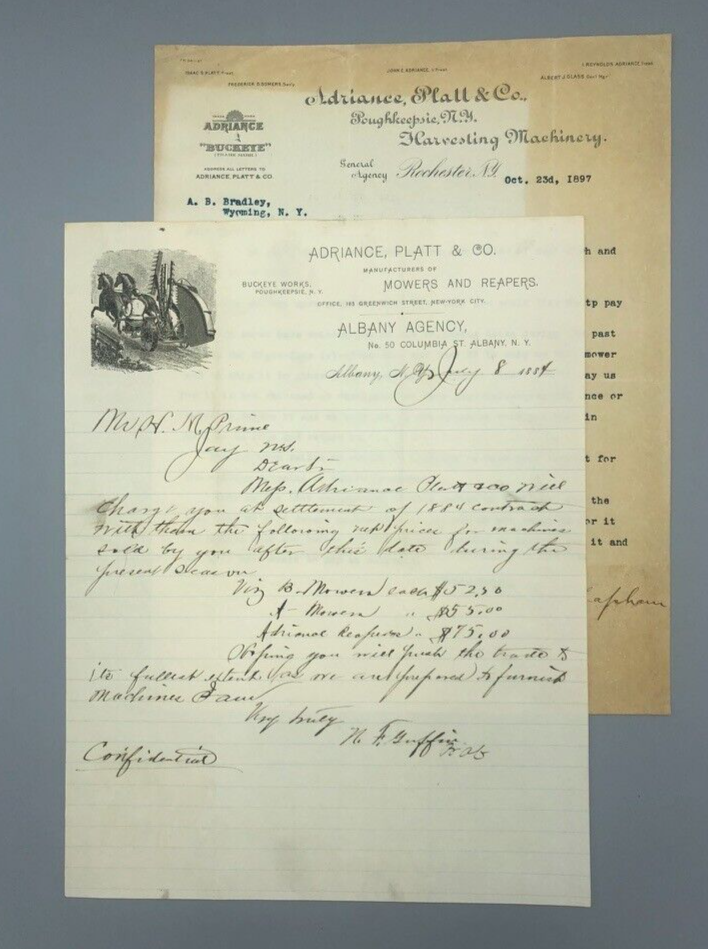 ISAAC S. PLATT, Treas.
JOHN E. ADRIANCE, V. Prest.
I. REYNOLDS ADRIANCE, Prest.
FREDERICK D. Sec'y.
ALBERT J. GLASS, Gen'l Mgr.
Adriance, Platt & Co.,
Poughkeepsie, N.Y.
Harvesting Machinery.
ADRIANCE
"BUCKEYE"
ADDRESS ALL LETTERS TO
ADRIANCE, PLATT & CO.
General
Agency Rochester, N.Y. Oct. 23d, 1897
A. B. Bradley,
Wyoming, N. Y.
h and
tp pay
past
mower
ay us
nce or
in
t for
the
or it
it and
ADRIANCE, PLATT & CO.
MANUFACTURERS OF
MOWERS AND REAPERS.
BUCKEYE WORKS,
POUGHKEEPSIE, N. Y.
OFFICE, 165 GREENWICH STREET, NEW-YORK CITY.
ALBANY AGENCY,
No. 50 COLUMBIA ST. ALBANY, N. Y.
Albany, N. Y. July 8 1884
Mr H. M. Prime
Jay N.Y.
Dear Sir
Mess. Adriance Platt & Co will
charge you at settlement of 1884 contract
with them the following net prices for machines
sold by you after this date during the
present season
Viz B. Mowers each $52.50
A - Mowers " $55.00
Adriance Reapers " $75.00
Hoping you will push the trade to
its fullest extent as we are prepared to furnish
Machines I am
Very truly
N. F. Guffin
Confidential